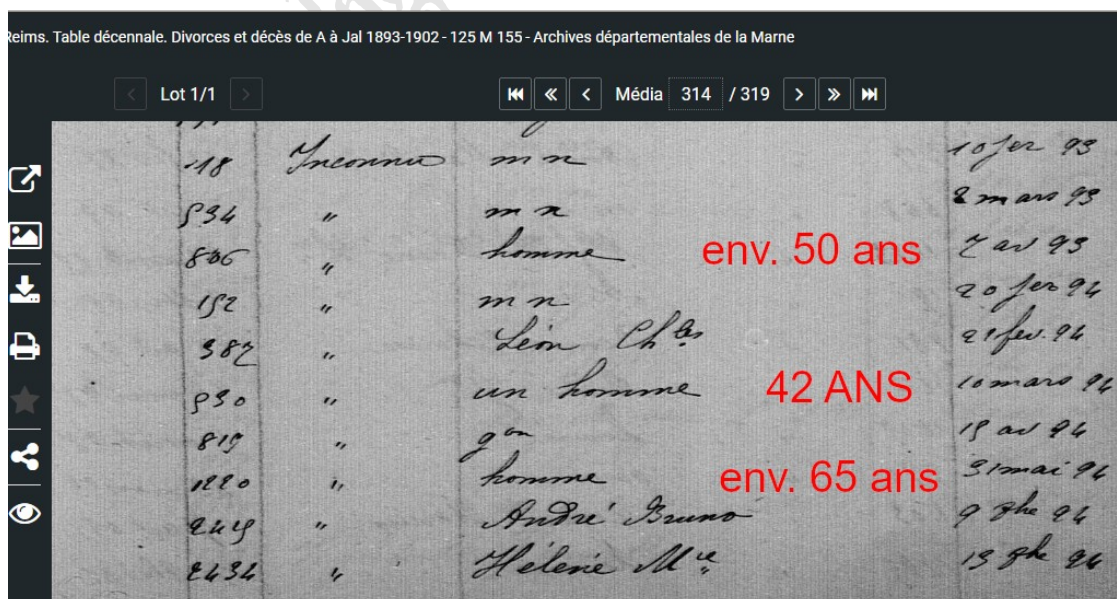 Reims. Table décennale. Divorces et décès de A à Jal 1893-1902 - 125 M 155 - Archives départementales de la Marne
Lot 1/1 Média 314 / 319
118 Inconnu m n 10 fer 93
534 " m n 2 mars 93
806 " homme env. 50 ans 7 av 93
152 " m n 20 fer 94
387 " Léon Ch les 21 fev. 94
530 " un homme 42 ANS 10 mars 94
819 " gon 15 av 94
1220 " homme env. 65 ans 31 mai 94
2415 " André Bruno 9 94
2434 " Hélène Mie 94